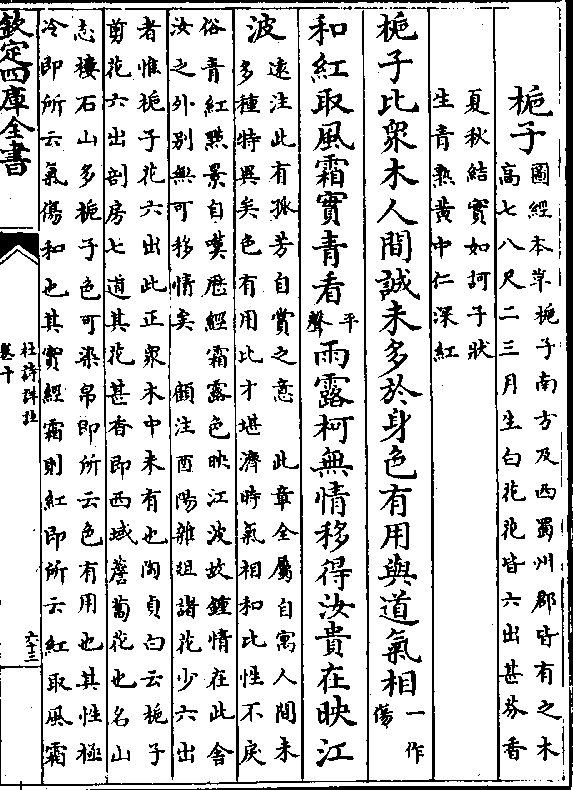 梔子
圖經本草梔子南方及西蜀州郡皆有之木
高七八尺二三月生白花花皆六出甚芬香
夏秋結實如訶子狀
生青熟黄中仁深紅
梔子比衆木人間誠未多於身色有用與道氣相一作傷
和紅取風霜實青看平聲雨露柯無情移得汝貴在映江
波
遠注此有孤芳自賞之意 此章全屬自寓人間未
多種特異矣色有用比才堪濟時氣相和比性不戾
俗青紅點景自嘆歴經霜露色映江波故鍾情在此舍
汝之外别無可移情矣 顧注酉陽雜俎諸花少六出
者惟梔子花六出此正衆木中未有也陶貞白云梔子
剪花六出剖房七道其花甚香即西域薝蔔花也名山
志樓石山多梔子色可染帛即所云色有用也其性極
冷即所云氣傷和也其實經霜則紅即所云紅取風霜
欽定四庫全書
杜詩詳註
卷十
六十三